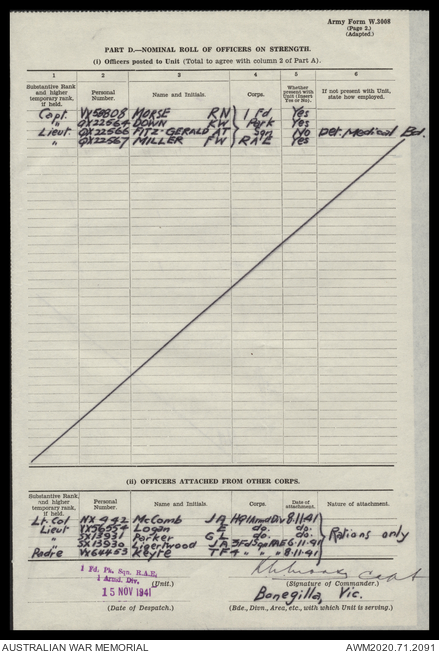 Army Form W.3008
(Page 3.)
(Adapted.)
PART D.—NOMINAL ROLL OF OFFICERS ON STRENGTH.
(i) Officers posted to Unit (Total to agree with column 2 of Part A).
1 2 3 4 5 6
Substantive Rank and higher temporary rank, if held. Personal Number. Name and Initials. Corps. Whether present with Unit (Insert Yes or No). If not present with Unit, state how employed.
Capt. VX58808 MORSE RN 1 Fd Yes
" QX22564 DOWN KW Park Yes
Lieut QX22566 FITZ-GERALD AT Sqn No Det. Medical Bd.
" QX22567 MILLER FW RAE Yes
(ii) OFFICERS ATTACHED FROM OTHER CORPS.
Substantive Rank, and higher temporary rank, if held. Personal Number. Name and Initials. Corps. Date of attachment. Nature of attachment.
Lt. Col NX442 McComb JA HQ1ArmdDiv 8.11.41
Lieut VX56554 Logan E do. do.
" SX13931 Parker GL do. do. Rations only
" SX13930 JA 3FdSqnRAE 6.11.41
Padre VX64453 Keyte TF " " " 8.11.41
1 Fd. Pk. Sqn. R.A.E.
1 Armd. Div.
(Unit.) Capt
(Signature of Commander.)
15 NOV 1941 Bonegilla, Vic.
(Date of Despatch.) (Bde., Divn., Area, etc., with which Unit is serving.)
AUSTRALIAN WAR MEMORIAL AWM2020.71.2091